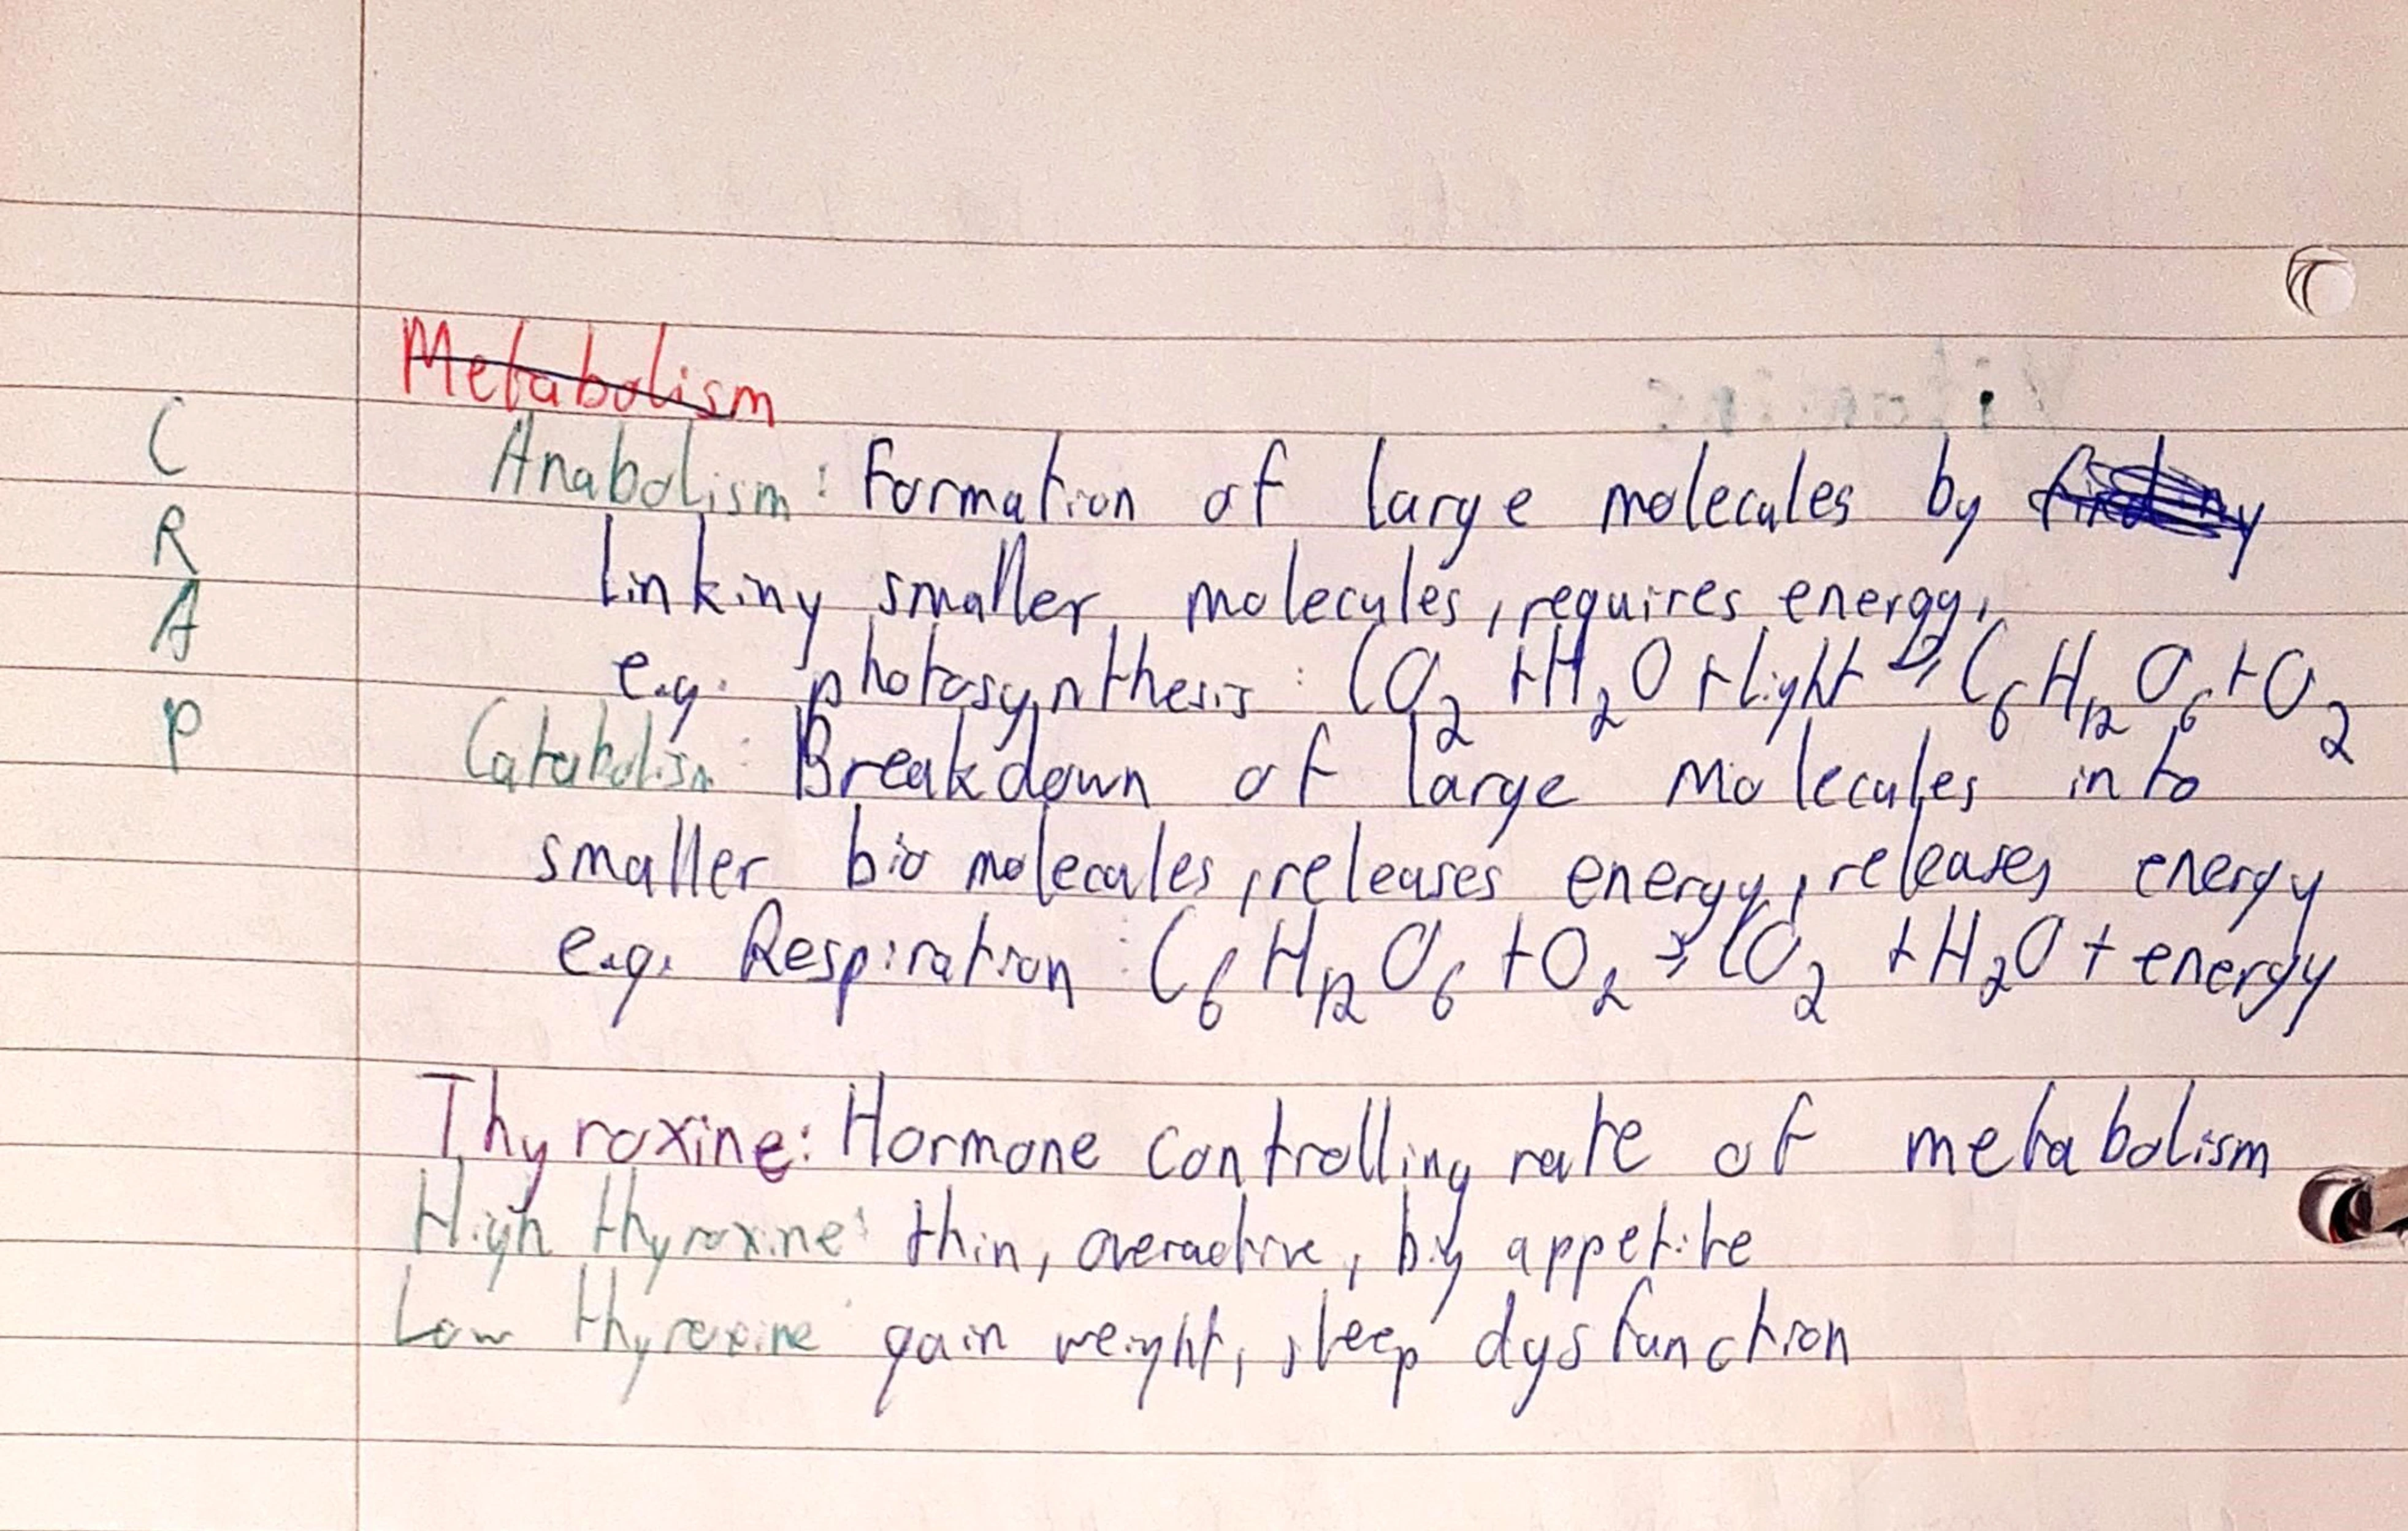 Metabolism
C
Anabolism: Formation of large molecules by
R
linking smaller molecules, requires energy,
A
e.g. photosynthesis: CO₂ + H₂O + light → C₆H₁₂O₆ + O₂
P
Catabolism: Breakdown of large molecules into
smaller bio molecules, releases energy, releases energy
e.g. Respiration: C₆H₁₂O₆ + O₂ → CO₂ + H₂O + energy
Thyroxine: Hormone controlling rate of metabolism
High thyroxine: thin, overactive, big appetite
Low thyroxine: gain weight, sleep dysfunction